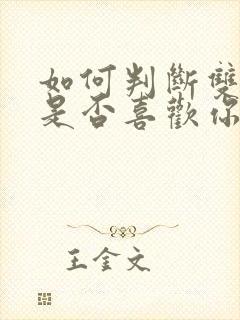 如何判斷雙
是否喜歡你
王金文